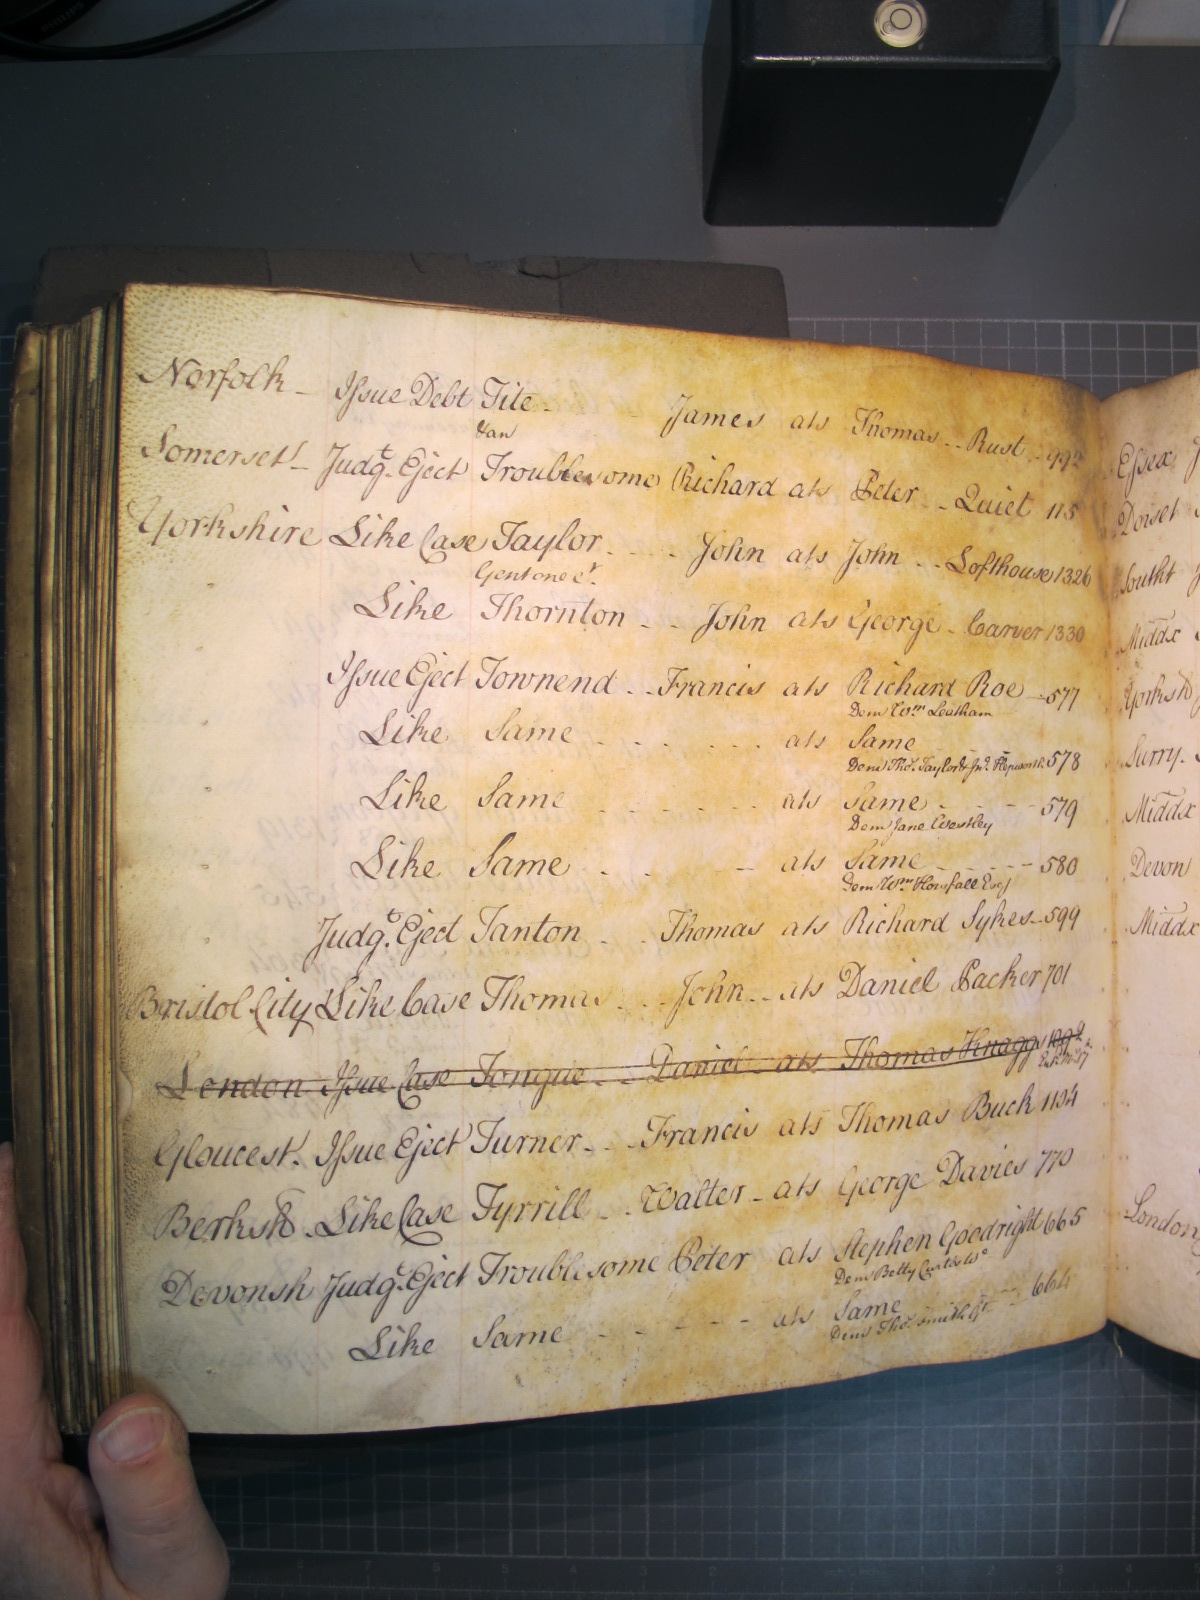 Norfolk - Issue Debt Tite - James ats Thomas - - Rust - 992
van
Somerset - Judgt. Eject Troublesome Richard ats Peter - - Quiet 115
Yorkshire Like Case Taylor - - - - John ats John - - Lofthouse 1326
Gent one &c.
Like Thornton - - John ats George - Carver 1330
Issue Eject Townend - - Francis ats Richard Roe - 577
Dem Wm Leatham
Like Same - - - - - ats Same
Dem Thos. Taylor & Jno. 578
Like Same - - - - - ats Same - - - 579
Dem Jane
Like Same - - - ats Same - - - - 580
Dem Wm Horsfall Esq
Judgt. Eject Tanton - - Thomas ats Richard Sykes - 599
Bristol City Like Case Thomas - - John - - ats Daniel Packer 701
London Issue Case Tongue - - Daniel - ats Thomas Knagg
Gloucest. Issue Eject Turner - - Francis ats Thomas Buck 1134
Berksh - Like Case Tyrrill - - Walter - ats George Davies 770
Devonsh Judgt. Eject Troublesome Peter ats Stephen Goodright 665
Dem Betty
Like Same - - - - - ats Same - - 664
Dem Thos. Smith
Essex
Dorset
Southt
Middx
Yorksh
Surry -
Middx
Devon
Middx
London